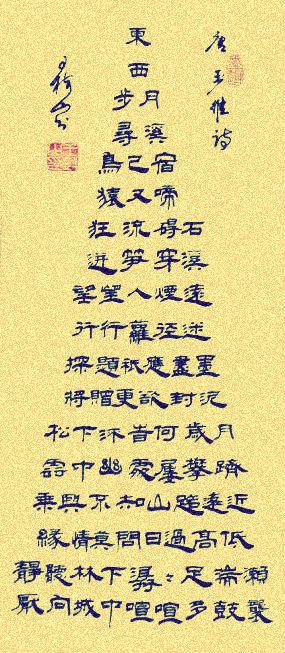 唐王維詩
東
西
步月
尋溪
鳥已宿
猿又啼
狂流碍石
迸笋穿溪
望望人煙遠
行行蘿徑迷
探題祇應盡墨
將贈更欲封泥
松下何歲月
雲中幽處屢攀躋
乘興不知山路遠近
緣情莫問日過高低
靜聽林下潺々足湍瀨
厭向城中喧喧多鼓鼙